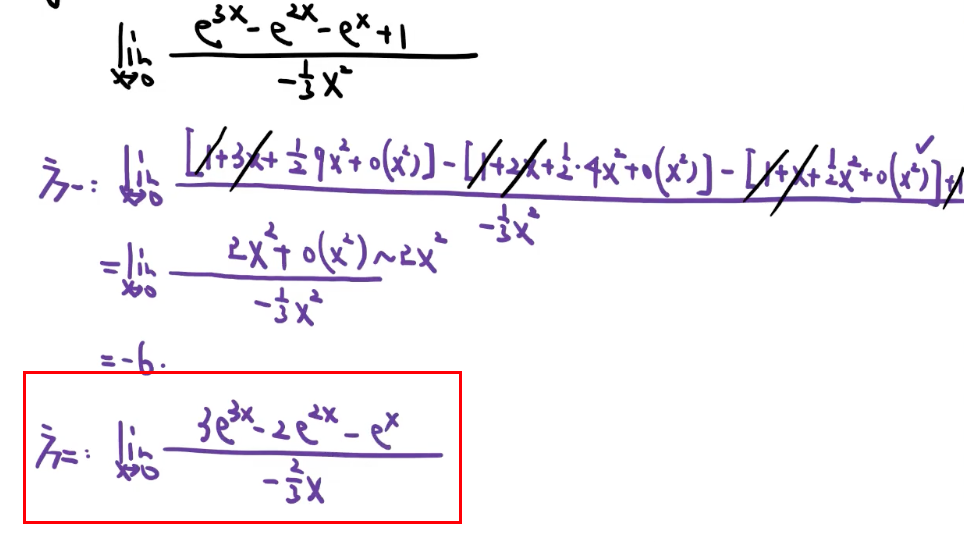 lim x→0 (e^{3x} - e^{2x} - e^x + 1) / (-1/3 x²)
法一: lim x→0 ([1+3x+1/2 9x²+o(x²)] - [1+2x+1/2·4x²+o(x²)] - [1+x+1/2x²+o(x²)]+1) / (-1/3 x²)
= lim x→0 (2x²+o(x²)~2x²) / (-1/3 x²)
= -6.
法二: lim x→0 (3e^{3x} - 2e^{2x} - e^x) / (-2/3 x)